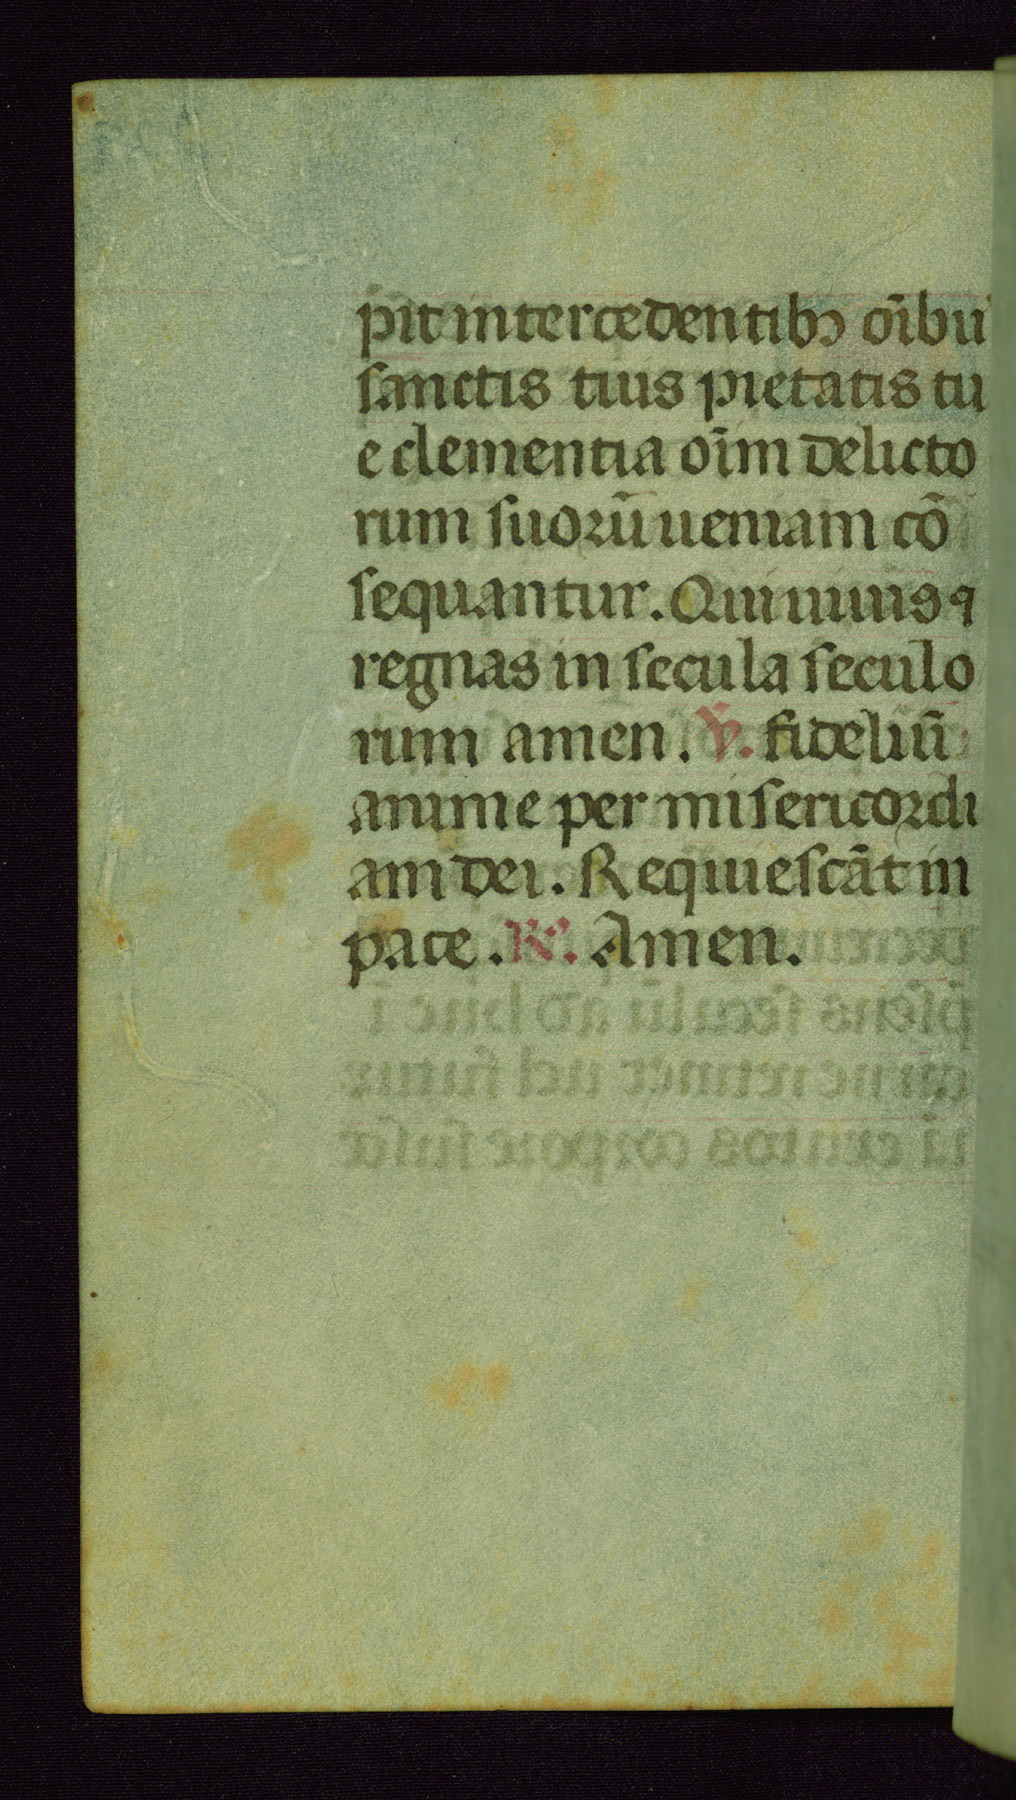 pit intercedentibꝫ oı̄bu
sanctis tuis pietatis tu
e clementia oı̄m delicto
rum suorū ueniam cō
sequantur. Qui uiuis ⁊
regnas in secula seculo
rum amen. ℣. fideliū
anime per misericordi
am dei. Requiescāt in
pace. ℟. Amen.